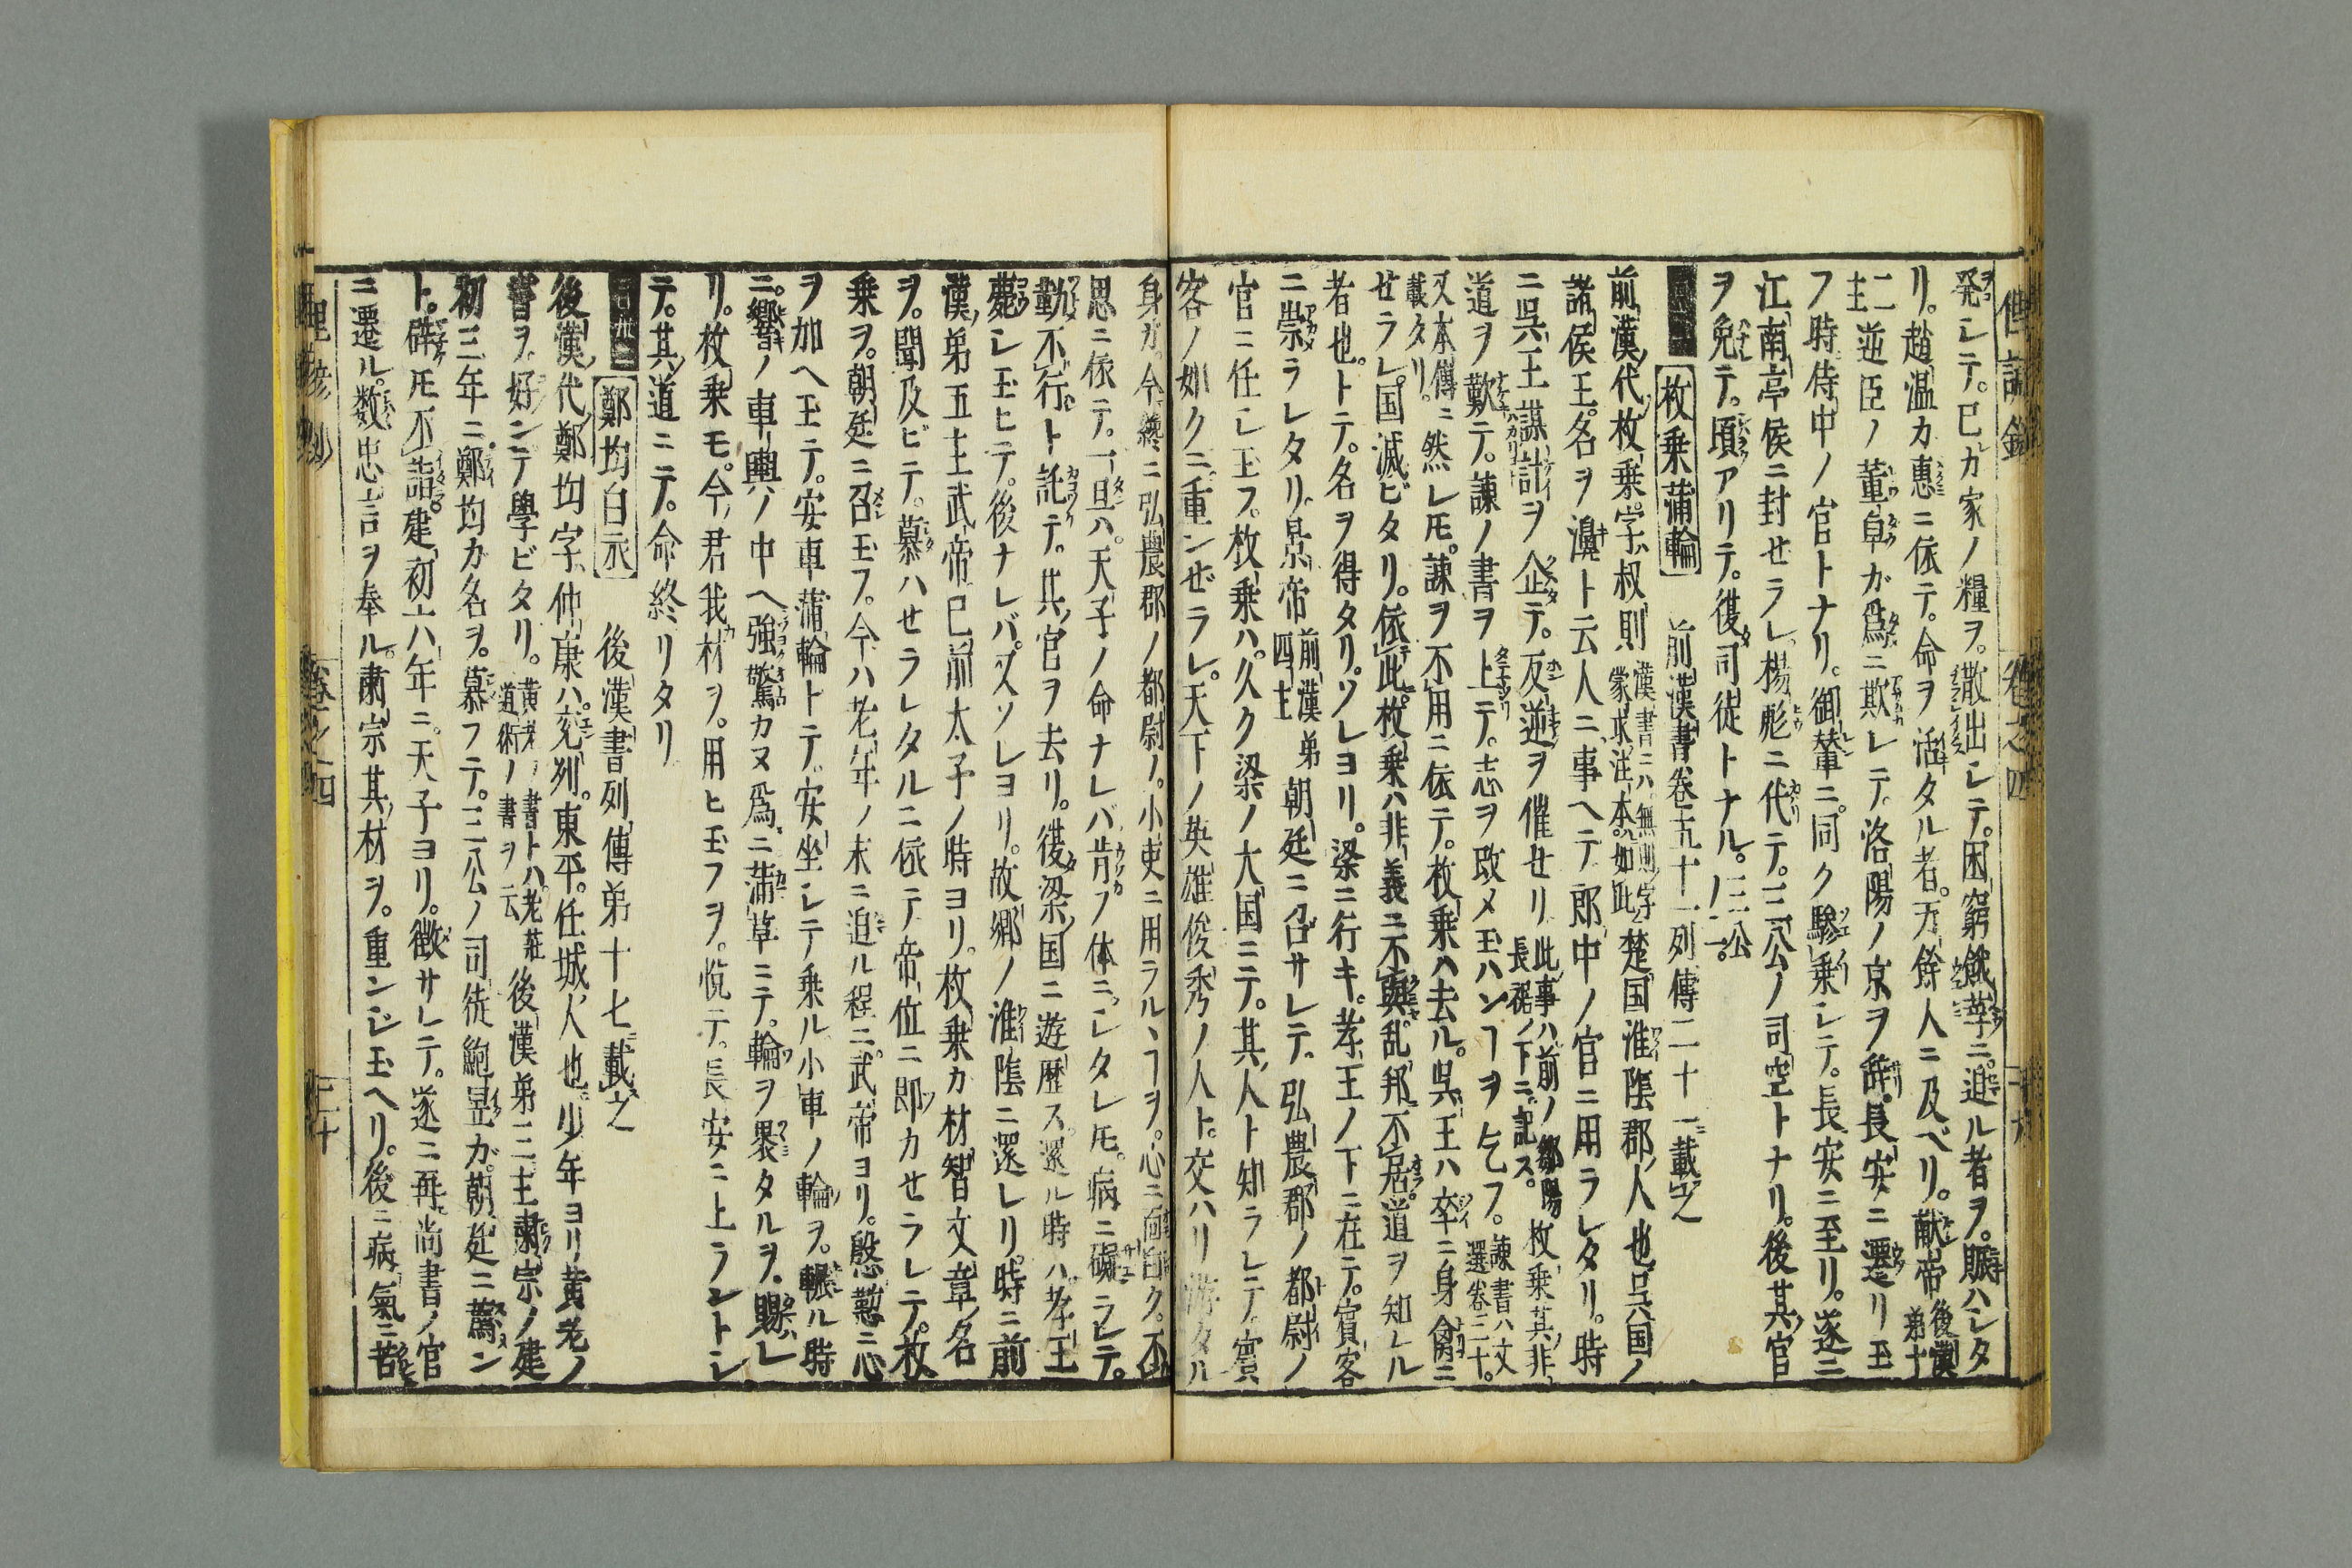 発シテ。已カ家ノ糧ヲ。散出シテ。困窮餓莩ニ。迫ル者ヲ。賑ハシタ
リ。趙温カ惠ニ依テ。命ヲ活タル者。万餘人ニ及ベリ。献帝後漢弟十
二主逆臣ノ董卓ガ爲ニ欺レテ。洛陽ノ京ヲ辞。長安ニ遷リ玉
フ時侍中ノ官トナリ。御輦ニ。同ク驂乗シテ。長安ニ至リ。遂ニ
江南亭侯ニ封セラレ。楊彪ニ代テ。三公ノ司空トナリ。後其官
ヲ免テ。頃アリテ。復司徒トナル。三公ノ一。
枚乗蒲輪 前漢書卷五十一列傳二十一載之
前漢代枚乗。字叔則漢書ニハ無則字蒙求注本如此楚国淮陰郡人也呉国ノ
諸侯王。名ヲ濞ト云人ニ事ヘテ郎中ノ官ニ用ラレタリ。時
ニ呉王謀計ヲ企テ。反逆ヲ催セリ此事ハ前ノ鄒陽長裾ノ下ニ記ス。枚乗其非
道ヲ歎テ。諫ノ書ヲ上テ。志ヲ改メ玉ハンヿヲ乞フ。諫書ハ文選卷三十。
又本傳ニ載タリ。然レ𪜈。諫ヲ不用ニ依テ。枚乗ハ去ル。呉王ハ卒ニ身禽ニ
せラレ。国滅ビタリ。依此。枚乗ハ非義ニ不與乱邦不居。道ヲ知レル
者也。トテ。名ヲ得タリ。ソレヨリ。梁ニ行キ。孝王ノ下ニ在テ。賓客
ニ崇ラレタリ。景帝前漢弟四主朝廷ニ召サレテ。弘農郡ノ都尉ノ
官ニ任シ玉フ。枚乗ハ。久ク梁ノ大国ニテ。其人ト知ラレテ。賓
客ノ如クニ重ンぜラレ。天下ノ英雄俊秀ノ人ト。交ハリ游タル
身ガ。今纔ニ弘農郡ノ都尉ノ。小吏ニ用ラルヽヿヲ。心ニ面白ク。不
思ニ依テ。一旦ハ。天子ノ命ナレバ肯フ体ニ。シタレ𪜈。病ニ礙ラレテ。
勤不行。ト託テ。其官ヲ去リ。復梁国ニ遊歴ス。還ル時ハ。孝王
薨シ玉ヒテ。後ナレバ。又ソレヨリ。故郷ノ淮陰ニ還レリ。時ニ前
漢弟五主武帝已前太子ノ時ヨリ。枚乗カ材智文章ノ名
ヲ。聞及ビテ。慕ハせラレタルニ依テ帝位ニ即カせラレテ。枚
乗ヲ。朝廷ニ召玉フ。今ハ老年ノ末ニ迫ル程ニ。武帝ヨリ。慇懃ニ心
ヲ加ヘ玉テ。安車蒲輪トテ。安坐シテ乗ル小車ノ輪ヲ。輾ル時
ニ。響ノ車輿ノ中ヘ強驚カヌ爲ニ。蒲草ニテ。輪ヲ裹タルヲ。賜レ
リ。枚乗モ。今君我材ヲ。用ヒ玉フヲ。悦テ。長安ニ上ラントシ
テ。其道ニテ。命終リタリ
鄭均白衣 後漢書列傳弟十七載之
後漢代鄭均字仲虞ハ。兗列。東平。任城人也少年ヨリ黄老ノ
書ヲ。好ンテ學ビタリ。黄老ノ書トハ老莊道術ノ書ヲ云後漢弟三主肅宗ノ建
初三年ニ。鄭均カ名ヲ。慕フテ。三公ノ司徒鮑昱ガ。朝廷ニ薦ン
ト。辟𪜈不詣。建初六年ニ。天子ヨリ。徴サレテ。遂ニ再尚書ノ官
ニ遷ル。数忠言ヲ奉ル。肅宗其材ヲ。重ンじ玉ヘリ。後ニ病氣ニ苦
卷之四
三十